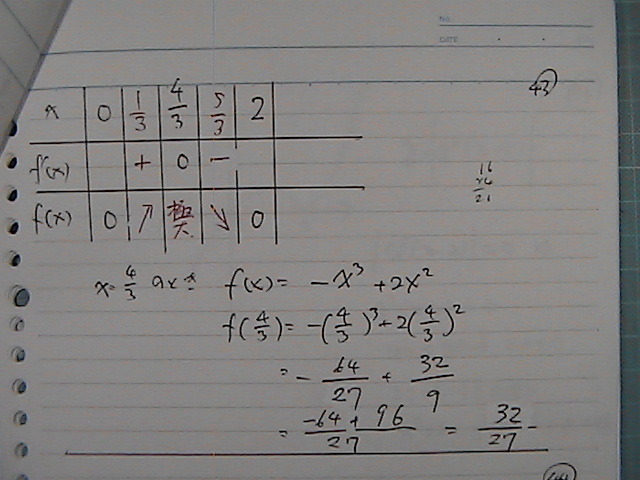 No.
DATE
43
x 0 1/3 4/3 5/3 2
f'(x) + 0 −
f(x) 0 ↗ 極大 ↘ 0
16
21
x = 4/3 のとき f(x) = −x³ + 2x²
f(4/3) = −(4/3)³ + 2(4/3)²
= − 64/27 + 32/9
= −64 + 96/27 = 32/27